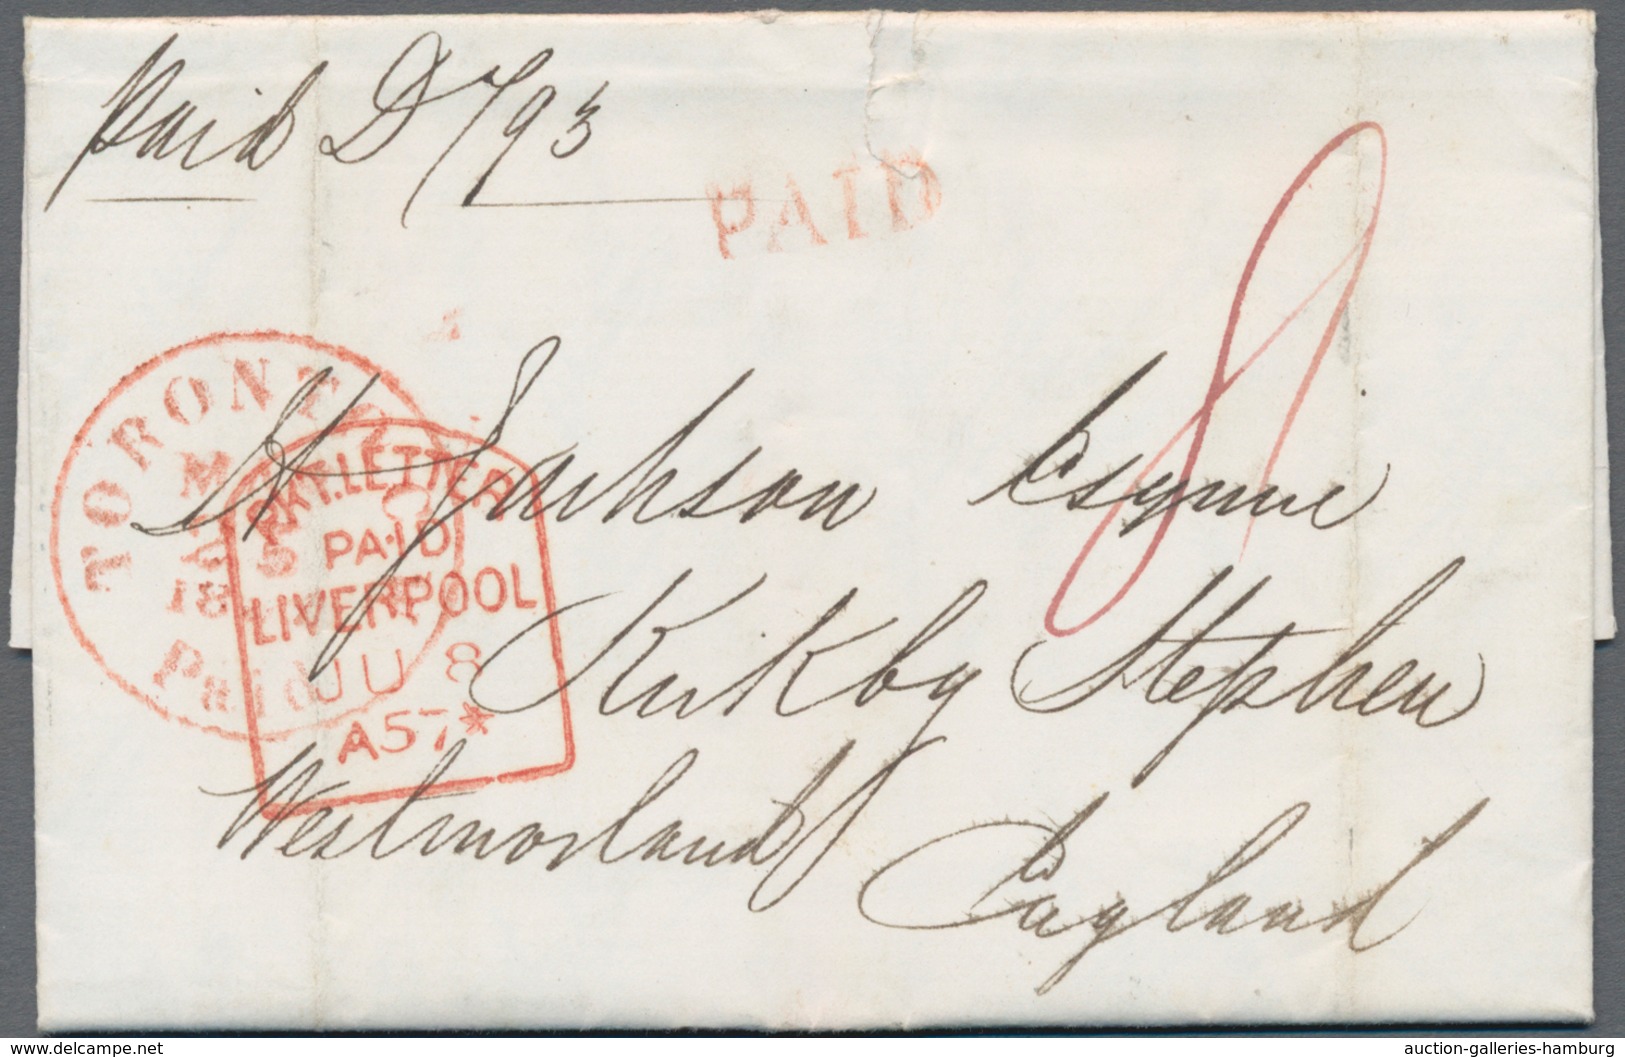 Paid D 1/93
PAID
8
TORONTO
MAY
Paid
PKT. LETTER
PAID
LIVERPOOL
JU 8
A57*
H Jackson Esquire
Kirkby Stephen
Westmorland
England
www.delcampe.net
auction-galleries-hamburg